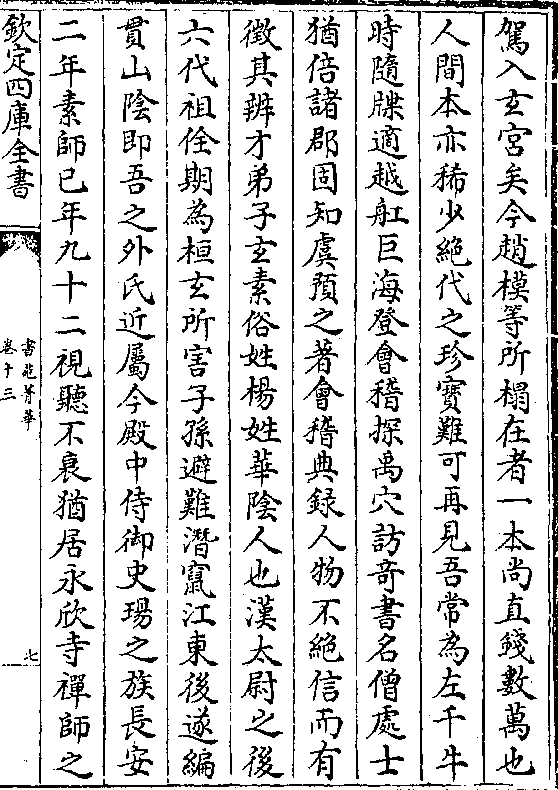 駕入玄宮矣今趙模等所榻在者一本尚直錢數萬也
人間本亦稀少絕代之珍寶難可再見吾常為左千牛
時隨牒適越舡巨海登會稽探禹穴訪竒書名僧處士
猶倍諸郡固知虞預之著會稽典録人物不絕信而有
徵其辨才弟子玄素俗姓楊姓華陰人也漢太尉之後
六代祖佺期為桓玄所害子孫避難潛竄江東後遂編
貫山陰即吾之外氏近屬今殿中侍御史瑒之族長安
二年素師已年九十二視聽不衰猶居永欣寺禪師之
欽定四庫全書
書苑菁華
卷十三
七